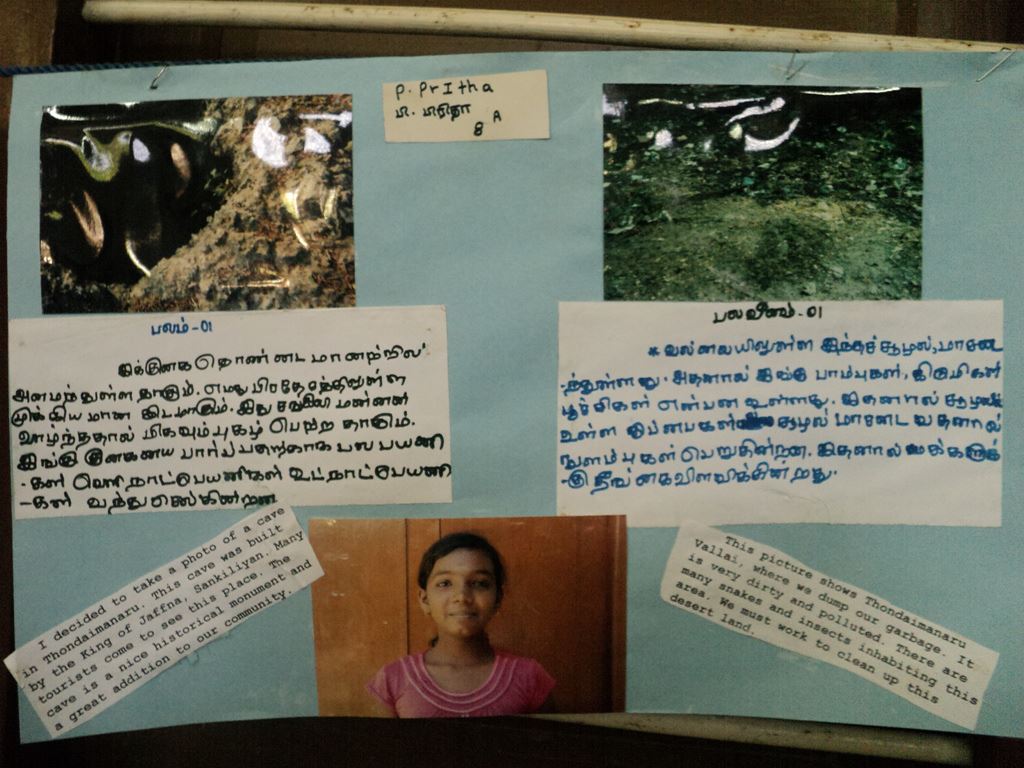 P. PrItha
பி. பிரிதா
8 A
பலம் - 01
இக்குகை தொண்டைமானாற்றில்
அமைந்துள்ளதாகும். எமது பிரதேசத்திலுள்ள
முக்கியமான இடமாகும். இது சங்கிலி மன்னன்
வாழ்ந்ததால் மிகவும் புகழ் பெற்றதாகும்.
இங்கு குகையை பார்ப்பதற்காக பல பயணி
-கள் வெளிநாட்டுப்பயணிகள் உட்நாட்பெயணி
-கள் வந்து செல்கின்றன
பலவீனம் - 01
* வல்லையிலுள்ள இந்தச் சூழல், மாசடை
-ந்துள்ளது. அதனால் இங்கு பாம்புகள், கிருமிகள்
பூச்சிகள் என்பன உள்ளது. இதனால்
உள்ள சூழல் மாசடைவதனால்
நுளம்புகள் பெறுகின்றன. இதனால் மக்களுக்
-கு தீங்கை விளைவிக்கின்றது.
I decided to take a photo of a cave
in Thondaimanaru. This cave was built
by the King of Jaffna, Sankiliyan. Many
tourists come to see this place. The
cave is a nice historical monument and
a great addition to our community.
This picture shows Thondaimanaru
Vallai, where we dump our garbage. It
is very dirty and polluted. There are
many snakes and insects inhabiting this
area. We must work to clean up this
desert land.